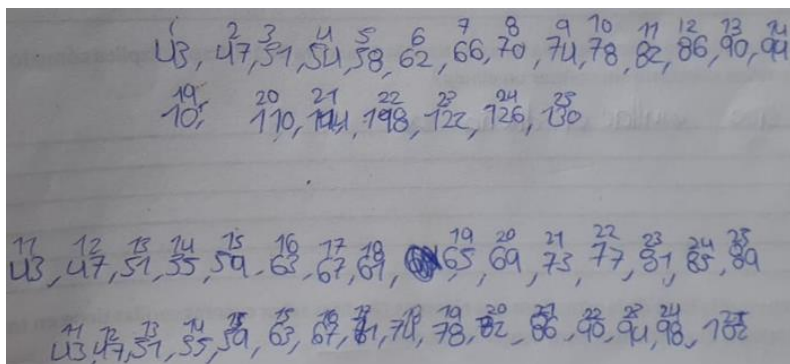 1 2 3 4 5 6 7 8 9 10 11 12 13 14
43, 47, 51, 54, 58, 62, 66, 70, 74, 78, 82, 86, 90, 94
19 20 21 22 23 24 25
10, 110, 114, 198, 122, 126, 130
11 12 13 14 15 16 17 18 19 20 21 22 23 24 25
43, 47, 51, 55, 59, 63, 67, 61, 65, 69, 73, 77, 81, 85, 89
11 12 13 14 15 16 17 18 19 20 21 22 23 24 25
43, 47, 51, 55, 59, 63, 67, 61, 74, 78, 82, 86, 90, 94, 98, 102